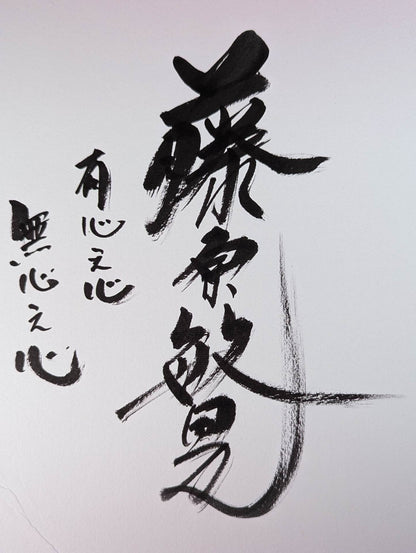 藤原敏男
有心之心
無心之心